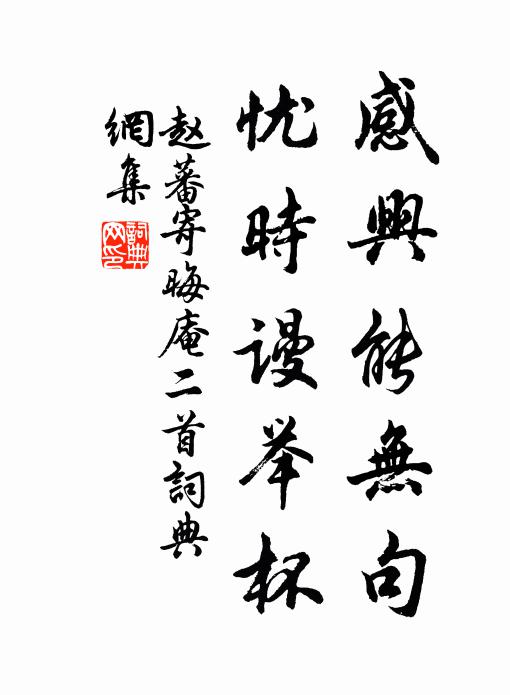 感興能無句
忧時謾举杯
赵蕃寄晦庵二首詞典
網集
詞典
网印